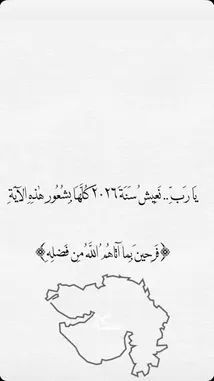 يَا رَبّ.. نَعِيشُ سَنَة ٢٠٢٦ كُلَّهَا بِشُعُور هٰذِهِ الآيَةِ
﴿فَرِحِينَ بِمَا آتَاهُمُ اللَّهُ مِن فَضلِهِ﴾